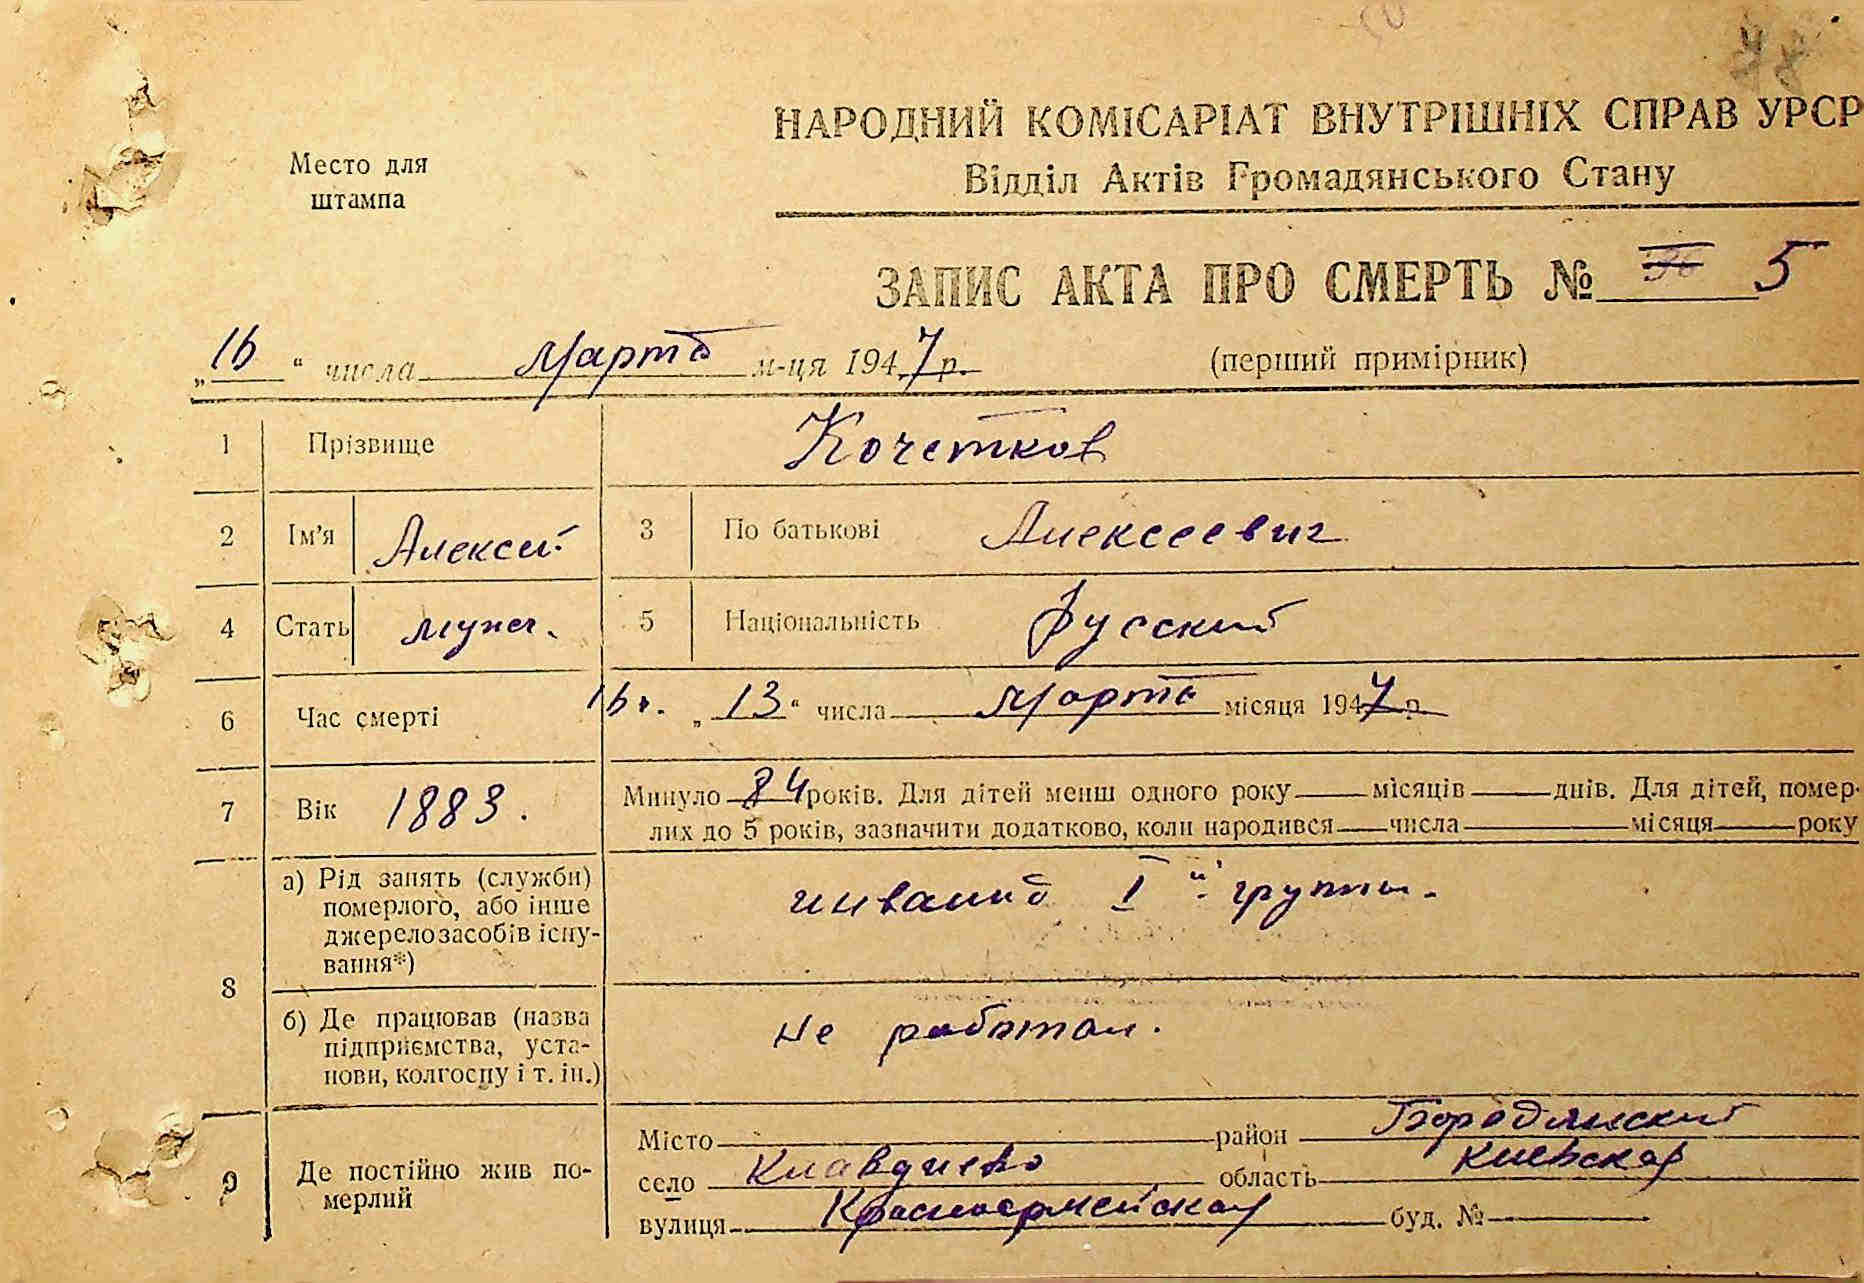 48
НАРОДНИЙ КОМІСАРІАТ ВНУТРІШНІХ СПРАВ УРСР
Место для
штампа
Відділ Актів Громадянського Стану
ЗАПИС АКТА ПРО СМЕРТЬ № 5
„16“ числа марта м-ця 1947 р.
(перший примірник)
1 Прізвище Кочетков
2 Ім'я Алексей 3 По батькові Алексеевич
4 Стать мужч. 5 Національність русский
6 Час смерті 16 г. „13“ числа марта місяця 1947 р.
7 Вік 1883. Минуло 84 років. Для дітей менш одного року — місяців — днів. Для дітей, помер-
лих до 5 років, зазначити додатково, коли народився — числа — місяця — року
8 а) Рід занять (служби)
померлого, або інше
джерело засобів існу-
вання*)
инвалид I й группы.
б) Де працював (назва
підприємства, уста-
нови, колгоспу і т. ін.)
не работал.
9 Де постійно жив по-
мерлий
Місто — район Бородянский
село Клавдиево область Киевская
вулиця Красноармейская буд. № —